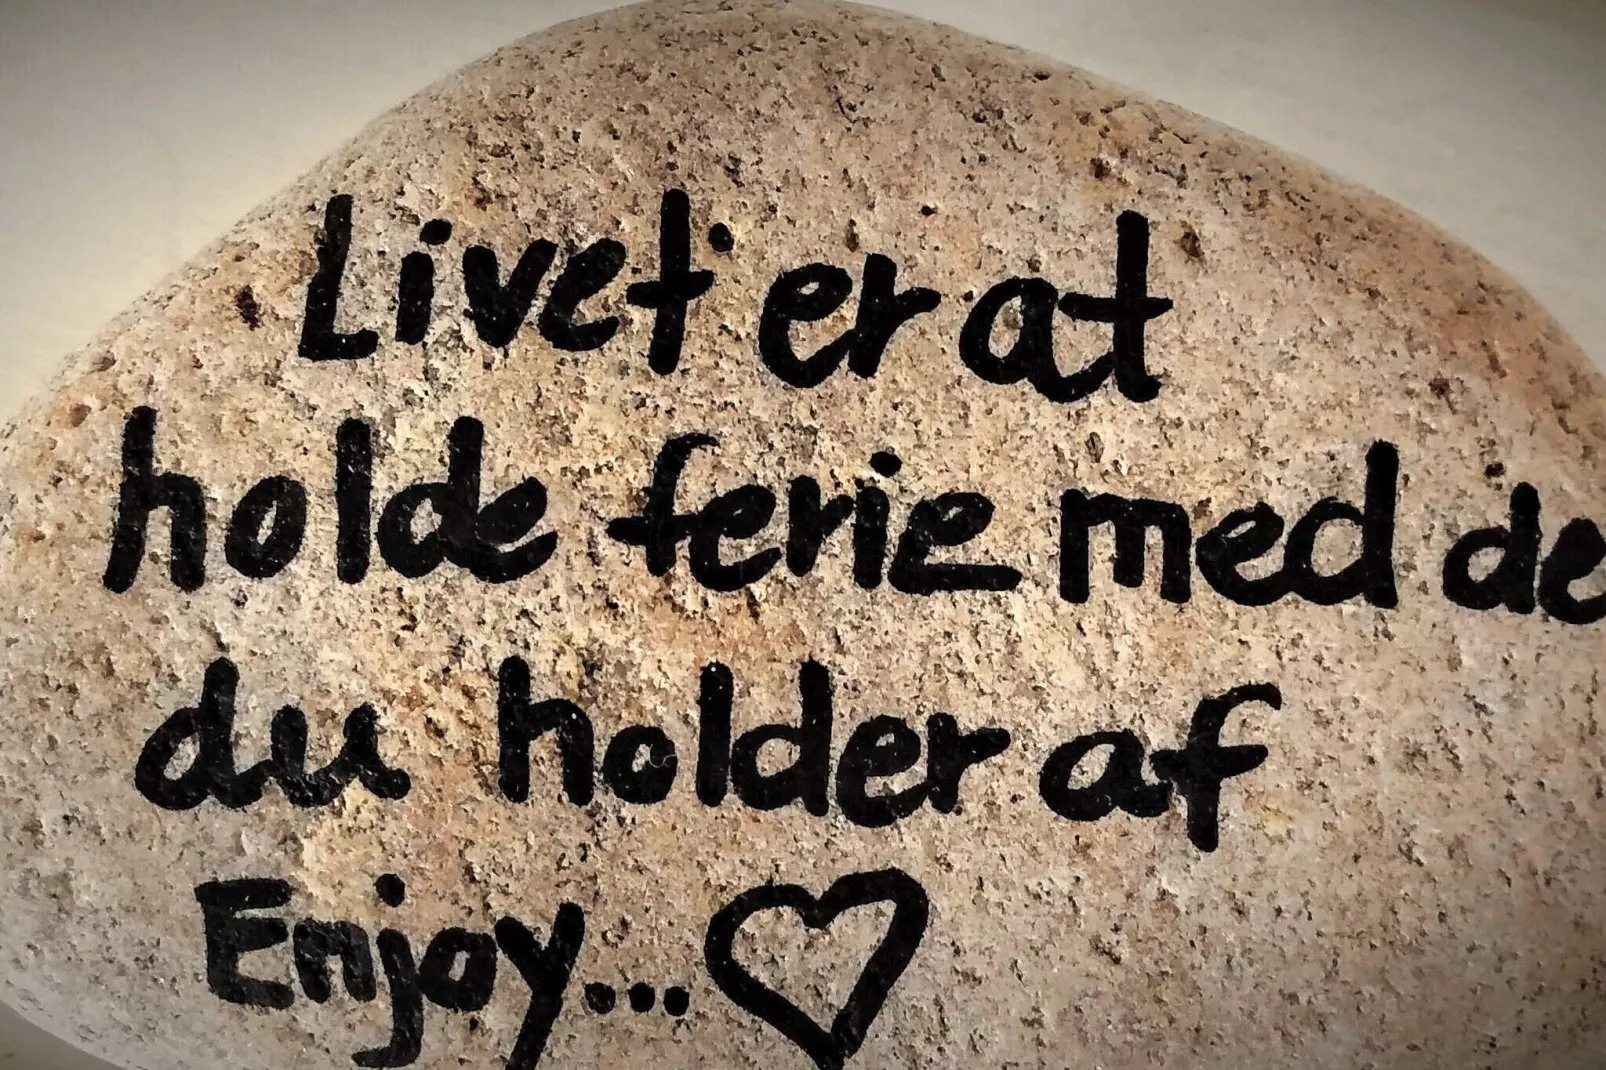 Livet er at
holde ferie med de
du holder af
Enjoy...♡